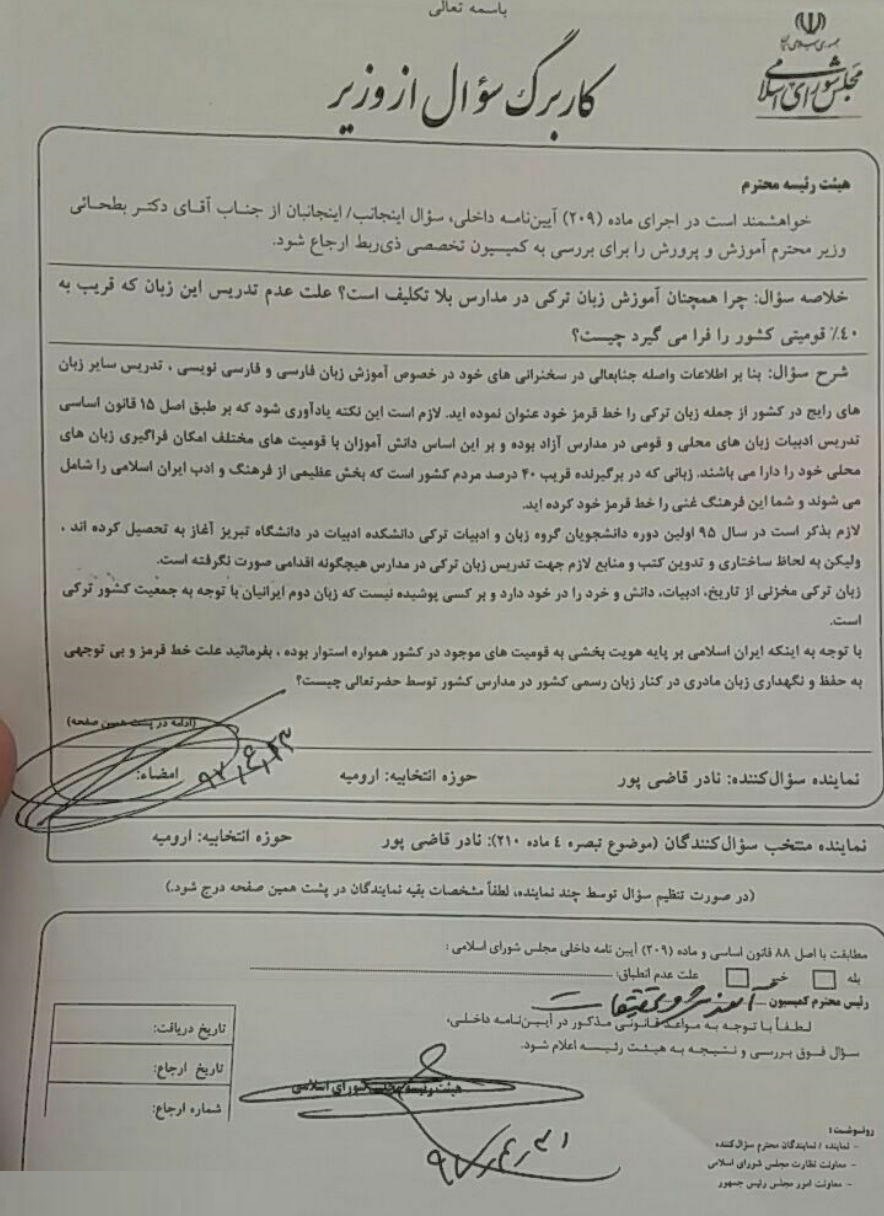 باسمه تعالی
جمهوری اسلامی ایران
مجلس شورای اسلامی
کاربرگ سؤال از وزیر
هیئت رئیسه محترم
خواهشمند است در اجرای ماده (۲۰۹) آیین‌نامه داخلی، سؤال اینجانب/ اینجانبان از جناب آقای دکتر بطحائی
وزیر محترم آموزش و پرورش را برای بررسی به کمیسیون تخصصی ذی‌ربط ارجاع شود.
خلاصه سؤال: چرا همچنان آموزش زبان ترکی در مدارس بلا تکلیف است؟ علت عدم تدریس این زبان که قریب به
۴۰٪ قومیتی کشور را فرا می گیرد چیست؟
شرح سؤال: بنا بر اطلاعات واصله جنابعالی در سخنرانی های خود در خصوص آموزش زبان فارسی و فارسی نویسی ، تدریس سایر زبان
های رایج در کشور از جمله زبان ترکی را خط قرمز خود عنوان نموده اید. لازم است این نکته یادآوری شود که بر طبق اصل ۱۵ قانون اساسی
تدریس ادبیات زبان های محلی و قومی در مدارس آزاد بوده و بر این اساس دانش آموزان با قومیت های مختلف امکان فراگیری زبان های
محلی خود را دارا می باشند. زبانی که در برگیرنده قریب ۴۰ درصد مردم کشور است که بخش عظیمی از فرهنگ و ادب ایران اسلامی را شامل
می شوند و شما این فرهنگ غنی را خط قرمز خود کرده اید.
لازم بذکر است در سال ۹۵ اولین دوره دانشجویان گروه زبان و ادبیات ترکی دانشکده ادبیات در دانشگاه تبریز آغاز به تحصیل کرده اند ،
ولیکن به لحاظ ساختاری و تدوین کتب و منابع لازم جهت تدریس زبان ترکی در مدارس هیچگونه اقدامی صورت نگرفته است.
زبان ترکی مخزنی از تاریخ، ادبیات، دانش و خرد را در خود دارد و بر کسی پوشیده نیست که زبان دوم ایرانیان با توجه به جمعیت کشور ترکی
است.
با توجه به اینکه ایران اسلامی بر پایه هویت بخشی به قومیت های موجود در کشور همواره استوار بوده ، بفرمائید علت خط قرمز و بی توجهی
به حفظ و نگهداری زبان مادری در کنار زبان رسمی کشور در مدارس کشور توسط حضرتعالی چیست؟
(ادامه در پشت همین صفحه)
نماینده سؤال‌کننده: نادر قاضی پور حوزه انتخابیه: ارومیه امضاء:
نماینده منتخب سؤال‌کنندگان (موضوع تبصره ٤ ماده ۲۱۰): نادر قاضی پور حوزه انتخابیه: ارومیه
(در صورت تنظیم سؤال توسط چند نماینده، لطفاً مشخصات بقیه نمایندگان در پشت همین صفحه درج شود.)
مطابقت با اصل ۸۸ قانون اساسی و ماده (۲۰۹) آیین نامه داخلی مجلس شورای اسلامی :
بله خیر علت عدم انطباق:
رئیس محترم کمیسیون آموزش و تحقیقات
لطفاً با توجه به مواعد قانونی مذکور در آیین‌نامه داخلی،
سؤال فوق بررسی و نتیجه به هیئت رئیسه اعلام شود.
هیئت رئیسه مجلس شورای اسلامی
تاریخ دریافت:
تاریخ ارجاع:
شماره ارجاع:
رونوشت:
- نماینده / نمایندگان محترم سؤال‌کننده
- معاونت نظارت مجلس شورای اسلامی
- معاونت امور مجلس رئیس جمهور